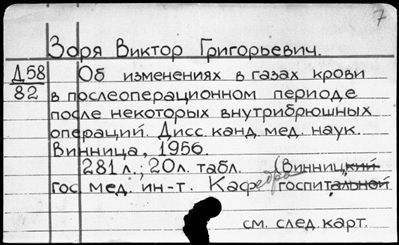 7
Зоря Виктор Григорьевич.
Д58
82
Об изменениях в газах крови
в послеоперационном периоде
после некоторых внутрибрюшных
операций. Дисс. канд. мед. наук.
Винница, 1956.
281 л.; 20 л. табл. (Винницкий
гос. мед. ин-т. Кафедра госпитальной
см. след. карт.